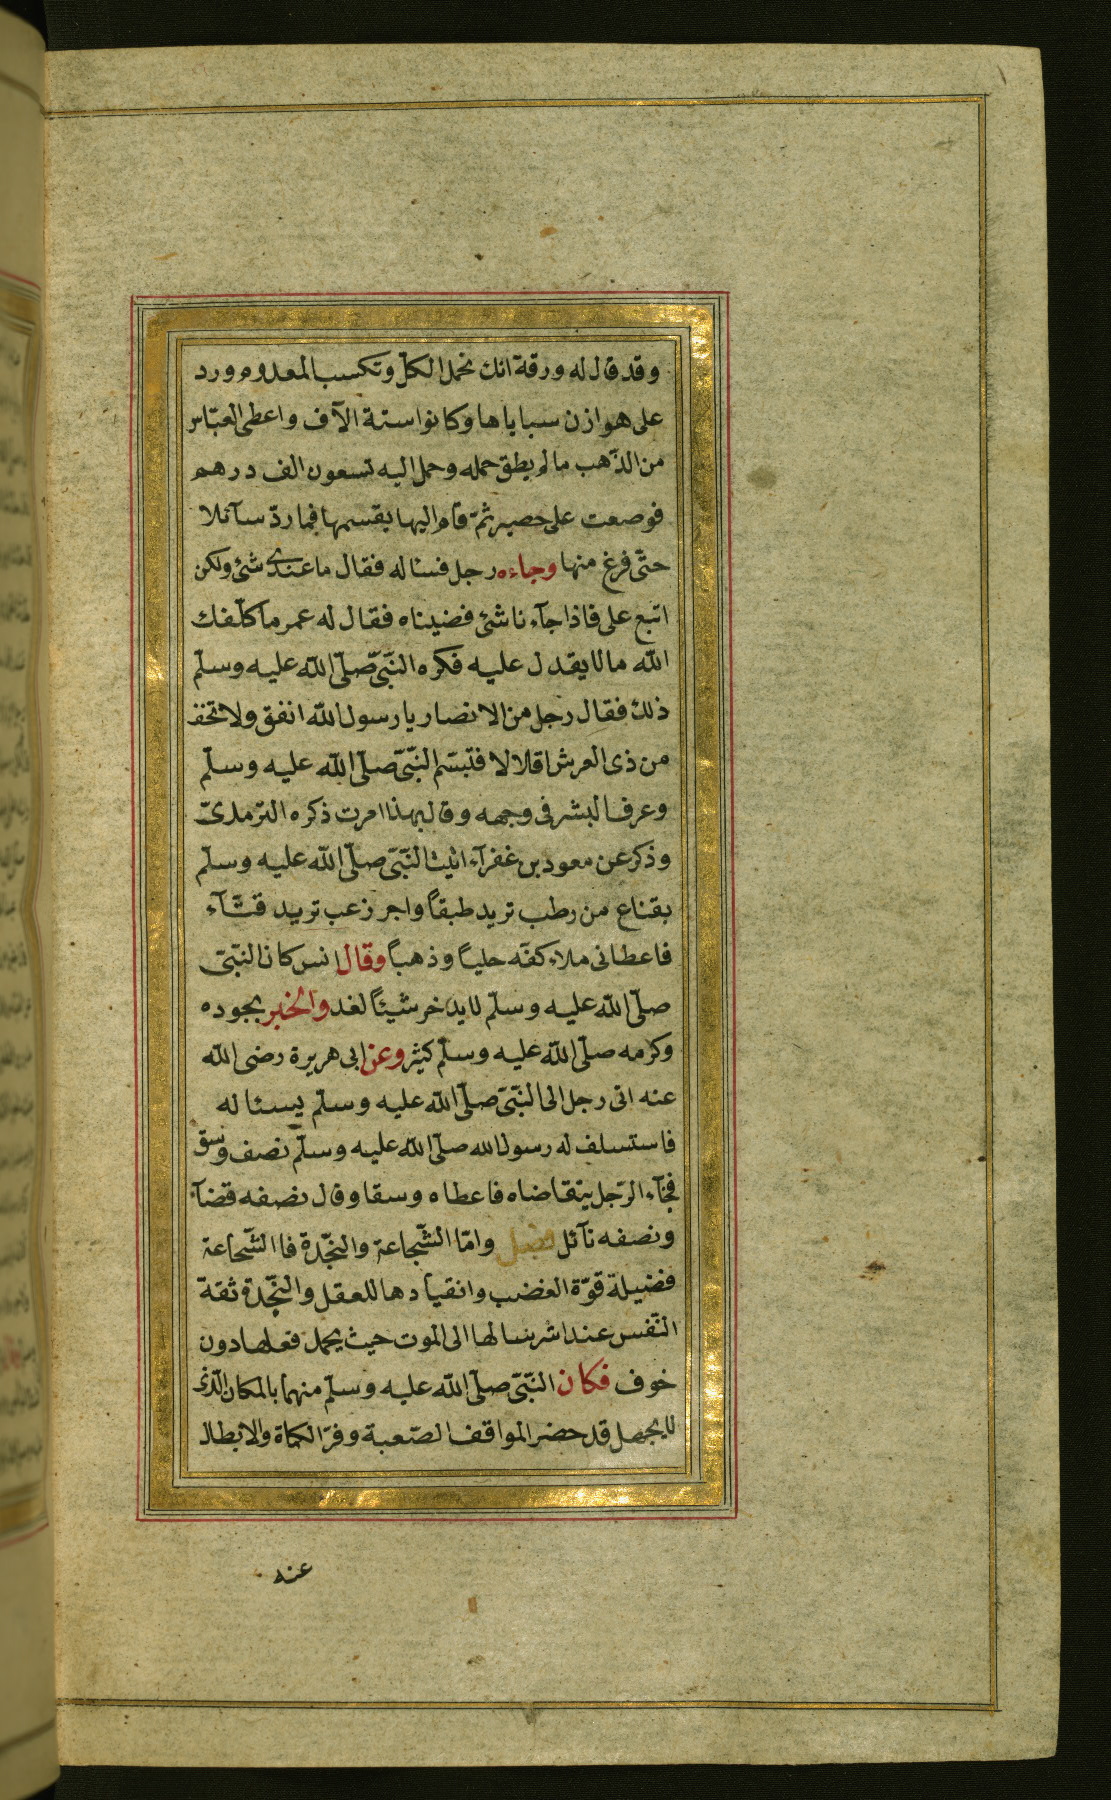 وقد قال له ورقة انك تحمل الكلّ وتكسب المعدوم ورد
على هوازن سباياها وكانوا ستة الآف واعطى العبّاس
من الذّهب ما لم يطق حمله وحمل اليه تسعون الف درهم
فوضعت على حصير ثمّ قام اليها يقسمها فما ردّ سآئلا
حتّى فرغ منها وجاءه رجل فسئاله فقال ما عندى شئ ولكن
اتبع على فاذا جآء ناشئ فضيناه فقال له عمر ما كلّفك
الله ما لا يقدل عليه فكره النّبىّ صلّى الله عليه وسلّم
ذلك فقال رجل من الانصار يا رسول الله انفق ولا تخف
من ذى العرش اقلالا فتبسّم النّبىّ صلّى الله عليه وسلّم
وعرف البشر فى وجهه وقال بهذا امرت ذكره الترمذىّ
وذكر عن معود بن غفرآء اتيت النّبىّ صلّى الله عليه وسلّم
بقناع من رطب تريد طبقاً واجر زعب تريد قثّآء
فاعطانى ملاء كفّه حلياً وذهباً وقال انس كان النّبىّ
صلّى الله عليه وسلّم لا يدخر شيئاً لغد والخبر بجوده
وكرمه صلّى الله عليه وسلّم كثير وعن ابى هريرة رضى الله
عنه اتى رجل الى النّبىّ صلّى الله عليه وسلّم يسئاله
فاستسلف له رسول الله صلّى الله عليه وسلّم نصف وسق
فجآء الرّجل يتقاضاه فاعطاه وسقا وقال نصفه قضآء
ونصفه نآئل فصل وامّا الشّجاعة والنّجدة فاالشّجاعة
فضيلة قوّة الغضب وانقيادها للعقل والنّجدة ثقة
النّفس عند اشرسالها الى الموت حيث يحمل فعلها دون
خوف فكان النّبىّ صلّى الله عليه وسلّم منهما بالمكان الّذى
لا يجهل قد حضر المواقف الصّعبة وفرّ الكماة والابطال
عنه